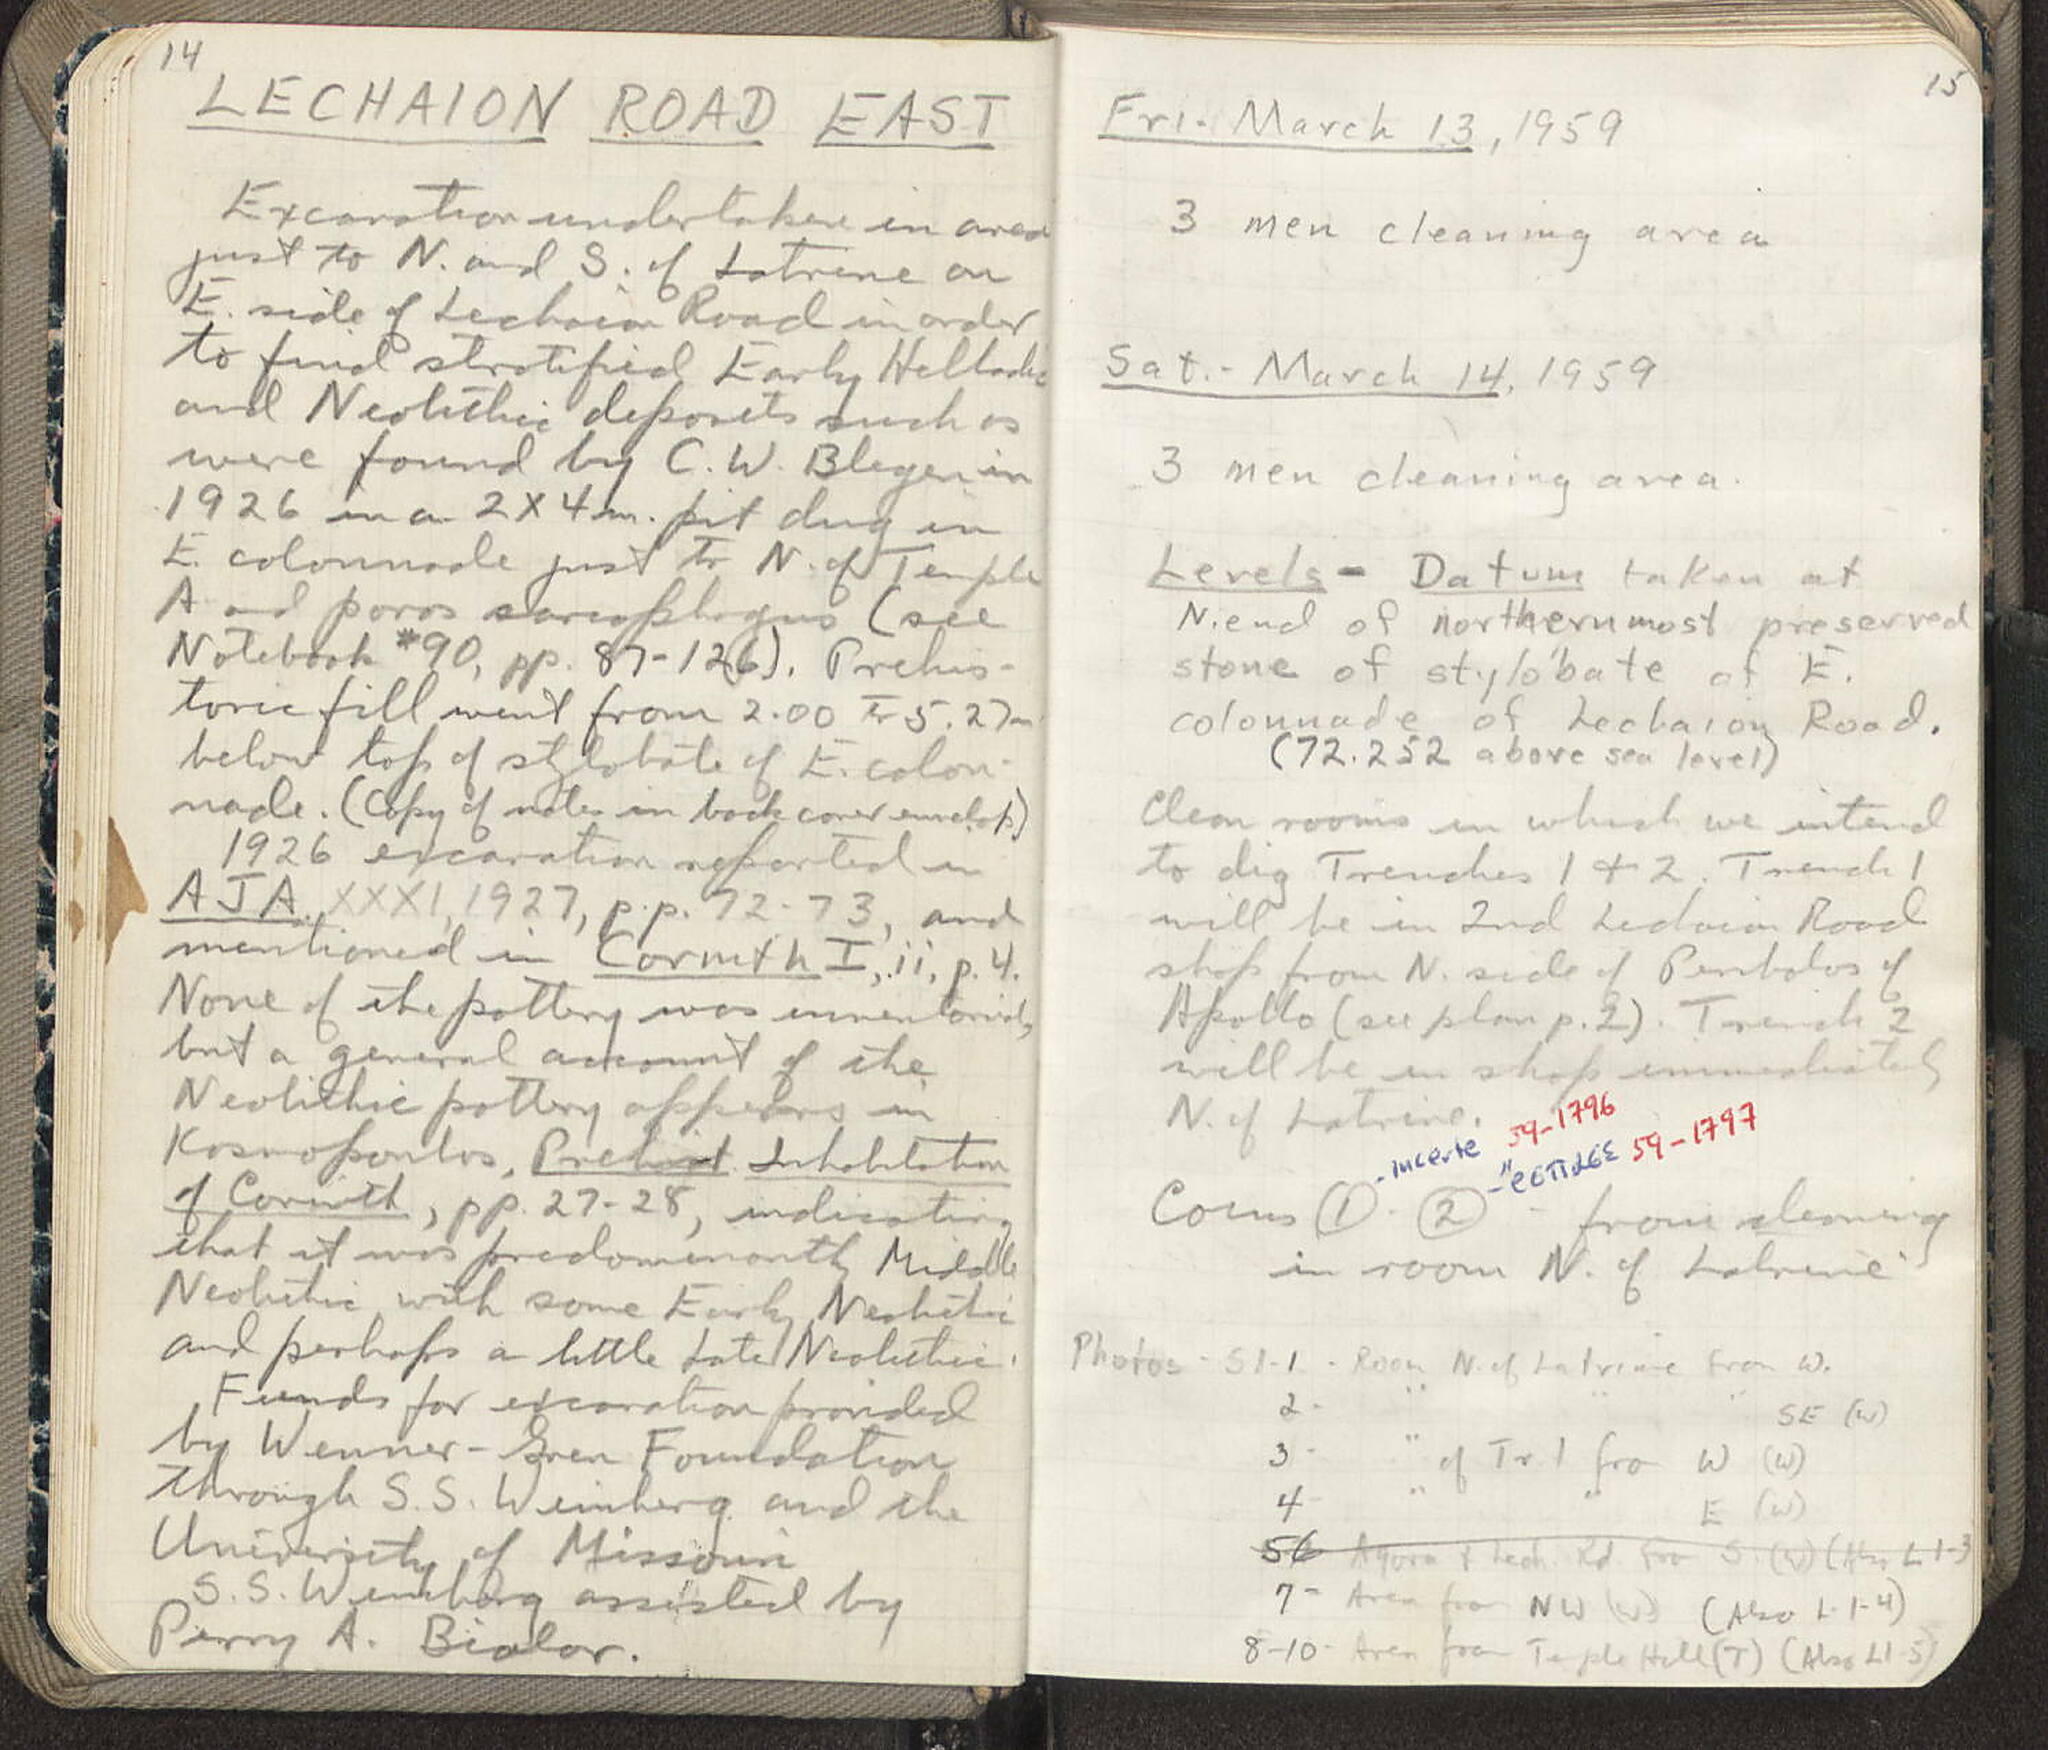 14
LECHAION ROAD EAST
Excavation undertaken in area
just to N. and S. of Latrine on
E. side of Lechaion Road in order
to find stratified Early Helladic
and Neolithic deposits such as
were found by C. W. Blegen in
1926 in a 2X4m. pit dug in
E. colonnade just to N. of Temple
A and poros sarcophagus (see
Notebook #90, pp. 87-126). Prehis-
toric fill went from 2.00 to 5.27m
below top of stylobate of E. colon-
nade. (Copy of notes in back cover envelop)
1926 excavation reported in
AJA. XXXI, 1927, p.p. 72-73, and
mentioned in Corinth I, ii, p. 4.
None of the pottery was inventoried,
but a general account of the
Neolithic pottery appears in
Kosmopoulos, Prehist. Inhabitation
of Corinth, pp. 27-28, indicating
that it was predominantly Middle
Neolithic with some Early Neolithic
and perhaps a little Late Neolithic.
Funds for excavation provided
by Wenner-Gren Foundation
through S.S. Weinberg and the
University of Missouri
S.S. Weinberg assisted by
Perry A. Bialor.
15
Fri. March 13, 1959
3 men cleaning area
Sat.- March 14, 1959
3 men cleaning area.
Levels - Datum taken at
N. end of northernmost preserved
stone of stylobate of E.
colonnade of Lechaion Road.
(72.252 above sea level)
Clean rooms in which we intend
to dig Trenches 1 & 2. Trench 1
will be in 2nd Lechaion Road
shop from N. side of Peribolos of
Apollo (see plan p. 2). Trench 2
will be in shop immediately
N. of Latrine.
- incerte 59-1796
59-1797
Coins ① - ② - from cleaning
in room N. of Latrine
Photos - S1-1 - Room N. of Latrine from W.
2- " " " SE (W)
3- " of Tr. 1 fro W (W)
4- " " E (W)
56 Agora & Lech. Rd. fro S. (W) (Also L 1-3
7- Area from NW (W) (Also L 1-4)
8-10- Area from Temple Hill (T) (Also L1-5)